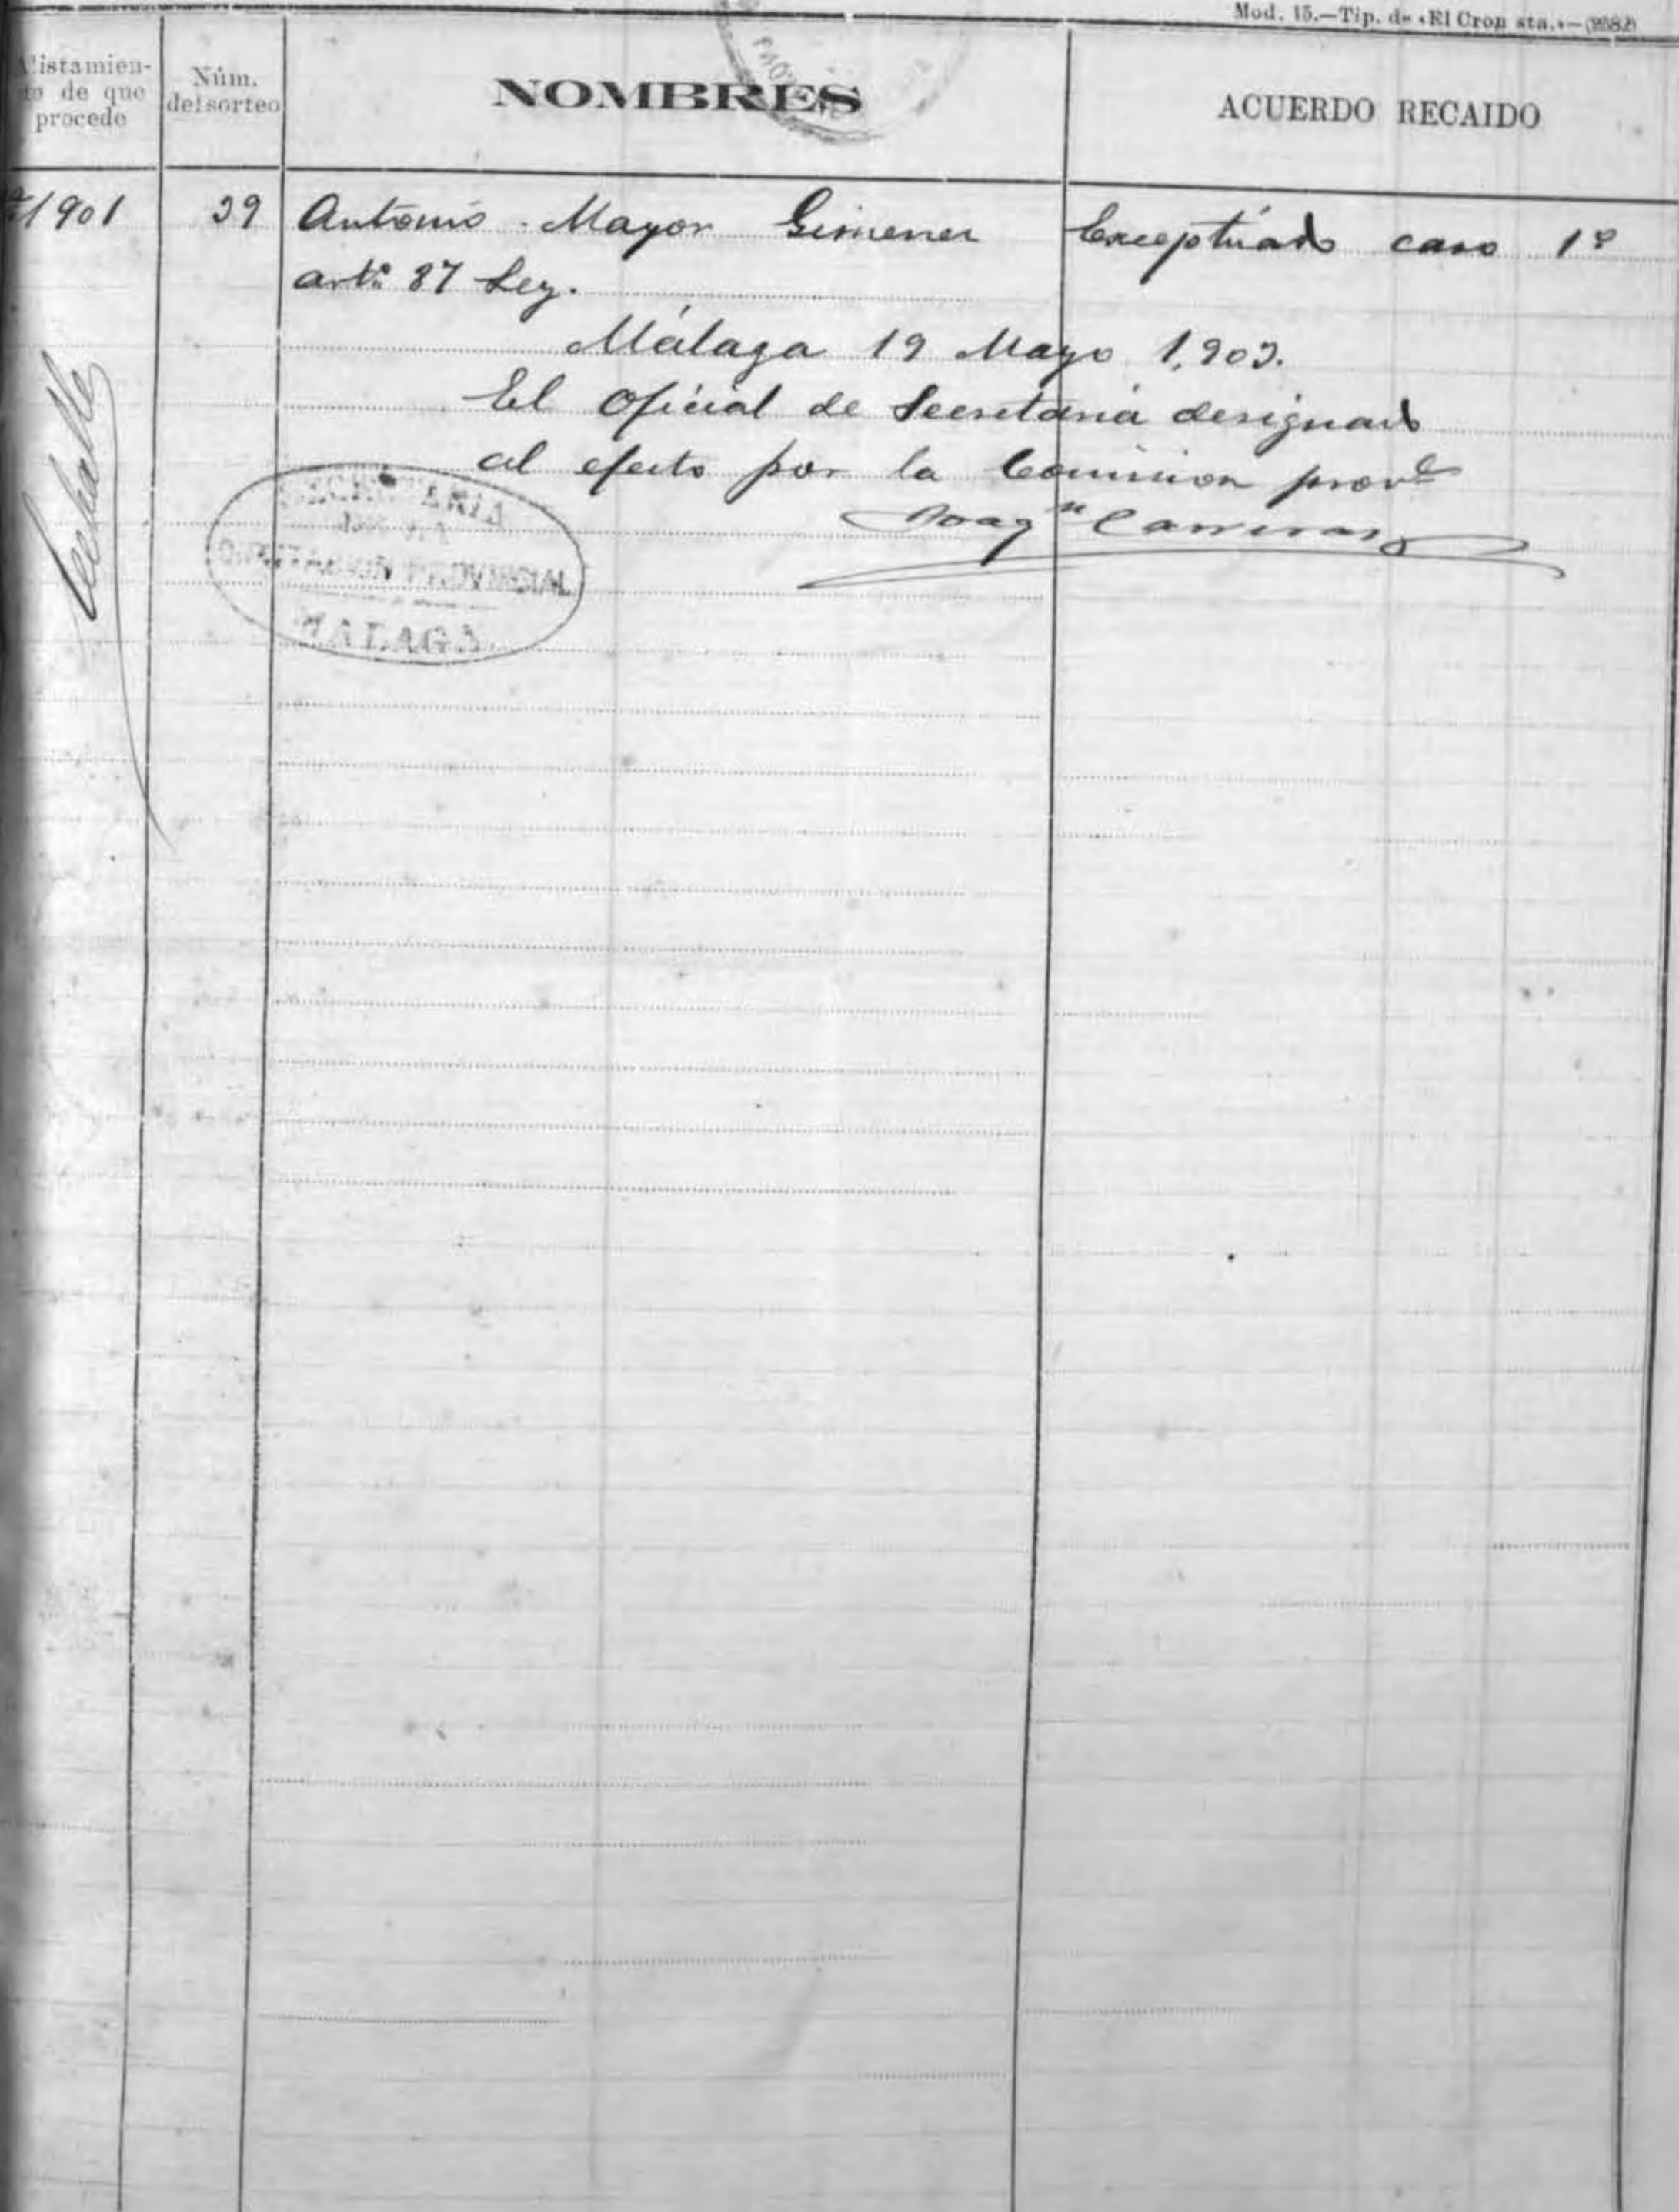 Mod. 15.—Tip. de «El Cron sta.»—(2582)
Alistamien-
to de que
procede
Núm.
del sorteo
NOMBRES
ACUERDO RECAIDO
1901 39 Antonio Mayor Gimenez Exceptuado caso 1º
artº 87 Ley.
Málaga 19 Mayo 1,903.
El Oficial de Secretaria designado
al efecto por la Comision provl
Joaqn Carreras
SECRETARIA
DE LA
DIPUTACION PROVINCIAL
MALAGA